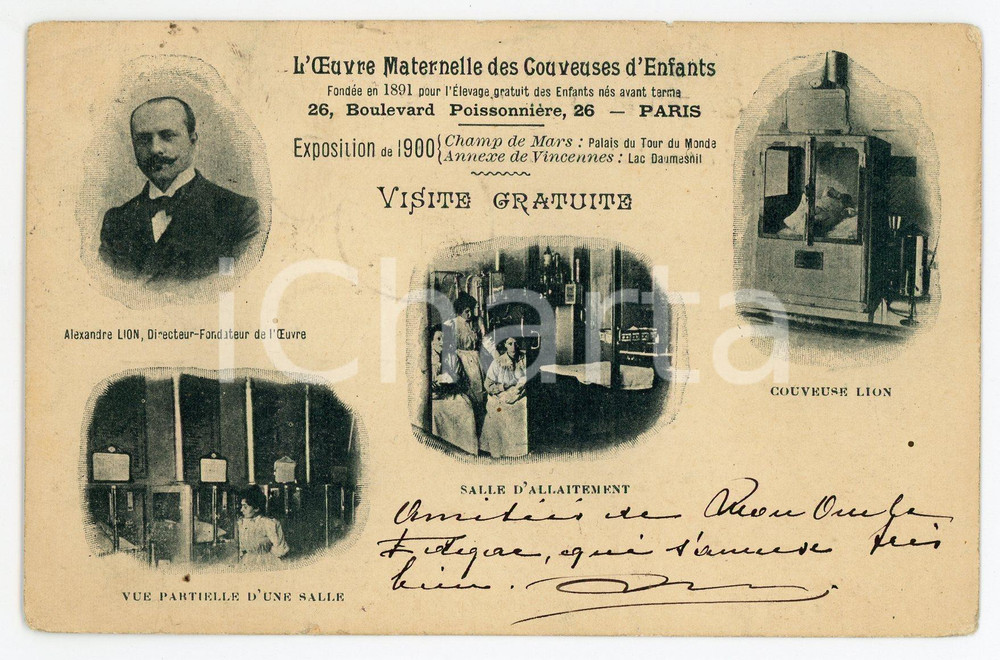 L'Œuvre Maternelle des Couveuses d'Enfants
Fondée en 1891 pour l'Élevage gratuit des Enfants nés avant terme
26, Boulevard Poissonnière, 26 — PARIS
Exposition de 1900 { Champ de Mars : Palais du Tour du Monde
Annexe de Vincennes : Lac Daumesnil
VISITE GRATUITE
Alexandre LION, Directeur-Fondateur de l'Œuvre
COUVEUSE LION
SALLE D'ALLAITEMENT
VUE PARTIELLE D'UNE SALLE
Amitiés de Mon Oncle
Edgar, qui s'amuse très
bien.
iCharta